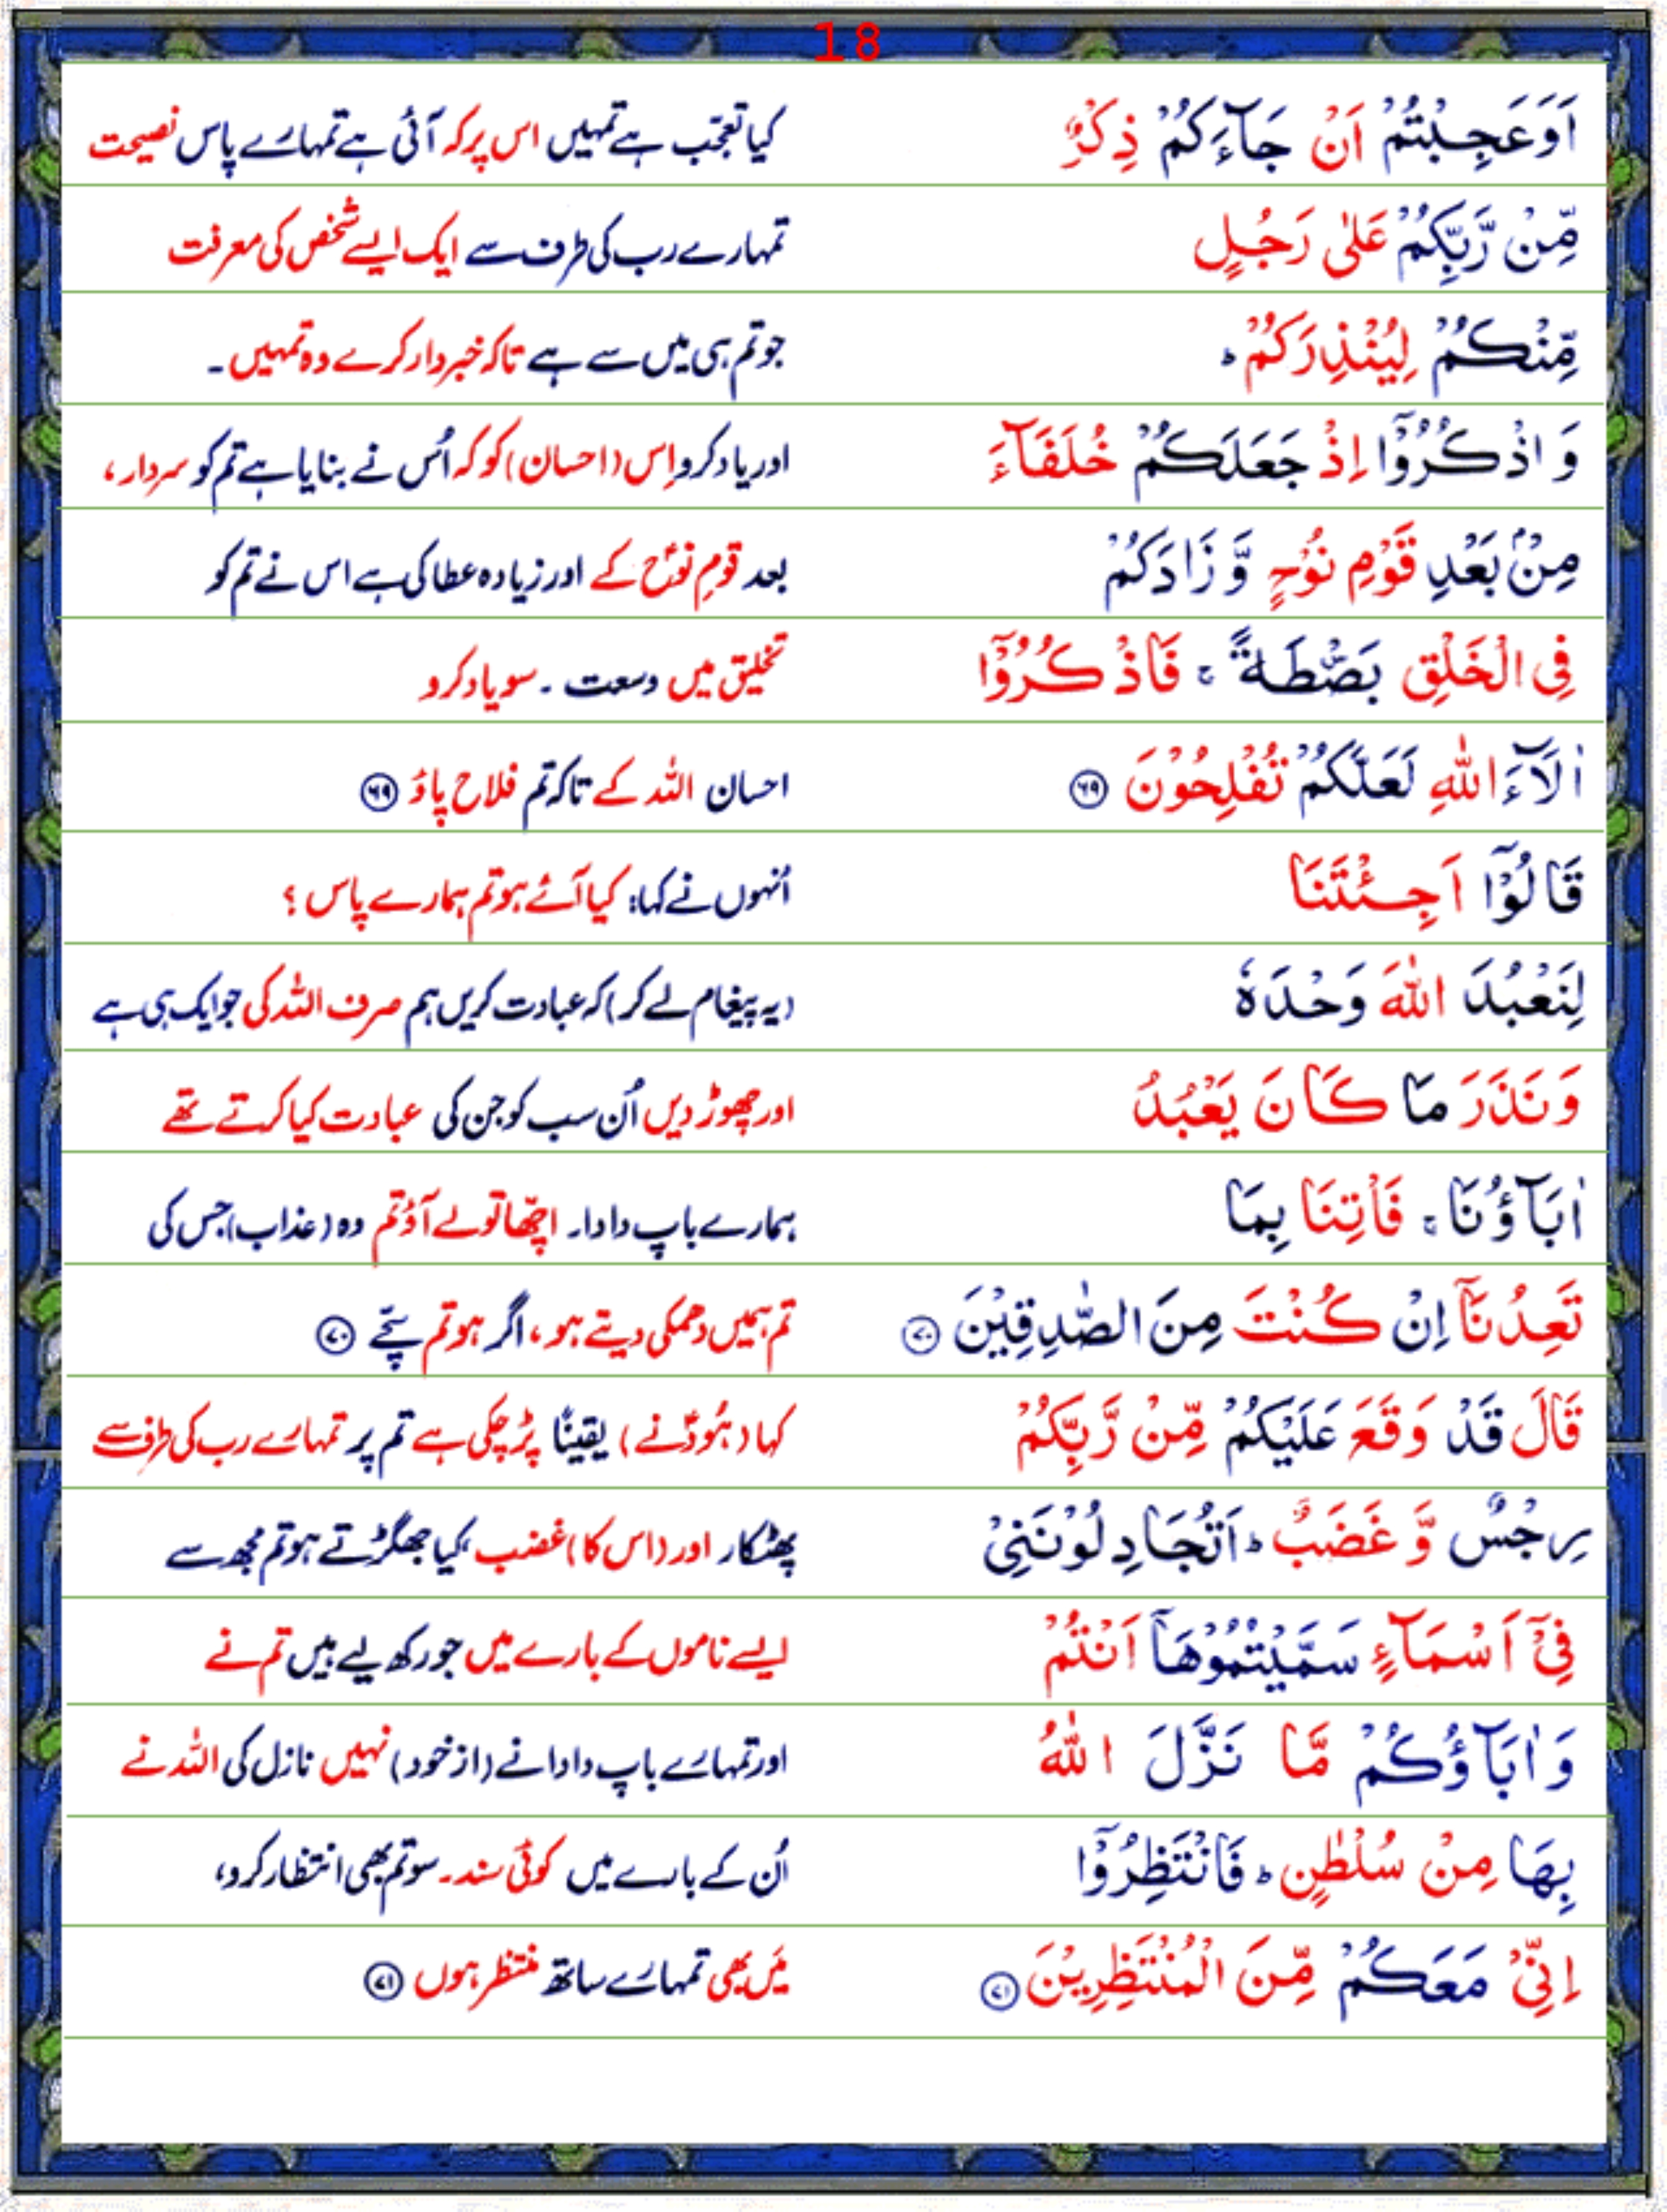 18
اَوَعَجِبْتُمْ اَنْ جَآءَكُمْ ذِكْرٌ کیا تعجّب ہے تمہیں اس پر کہ آئی ہے تمہارے پاس نصیحت
مِّنْ رَّبِّكُمْ عَلٰى رَجُلٍ تمہارے رب کی طرف سے ایک ایسے شخص کی معرفت
مِّنْكُمْ لِيُنْذِرَكُمْ ؕ جو تم ہی میں سے ہے تاکہ خبردار کرے وہ تمہیں ۔
وَ اذْكُرُوْۤا اِذْ جَعَلَكُمْ خُلَفَآءَ اور یاد کرو اِس (احسان) کو کہ اُس نے بنایا ہے تم کو سردار ،
مِنْۢ بَعْدِ قَوْمِ نُوْحٍ وَّ زَادَكُمْ بعد قومِ نوحؑ کے اور زیادہ عطا کی ہے اس نے تم کو
فِى الْخَلْقِ بَصْۜطَةً ۚ فَاذْكُرُوْۤا تخلیق میں وسعت ۔ سو یاد کرو
اٰلَآءَ اللّٰهِ لَعَلَّكُمْ تُفْلِحُوْنَ ۶۹ احسان اللہ کے تاکہ تم فلاح پاؤ ۶۹
قَالُوْۤا اَجِئْتَنَا اُنہوں نے کہا: کیا آئے ہو تم ہمارے پاس ؟
لِنَعْبُدَ اللّٰهَ وَحْدَهٗ (یہ پیغام لے کر) کہ عبادت کریں ہم صرف اللہ کی جو ایک ہی ہے
وَنَذَرَ مَا كَانَ يَعْبُدُ اور چھوڑ دیں اُن سب کو جن کی عبادت کیا کرتے تھے
اٰبَآؤُنَا ۚ فَاْتِنَا بِمَا ہمارے باپ دادا۔ اچّھا تو لے آؤ تم وہ (عذاب) جس کی
تَعِدُنَاۤ اِنْ كُنْتَ مِنَ الصّٰدِقِيْنَ ۷۰ تم ہمیں دھمکی دیتے ہو ، اگر ہو تم سچّے ۷۰
قَالَ قَدْ وَقَعَ عَلَيْكُمْ مِّنْ رَّبِّكُمْ کہا (ہُودؑ نے) یقینًا پڑ چکی ہے تم پر تمہارے رب کی طرف سے
رِجْسٌ وَّ غَضَبٌ ؕ اَتُجَادِلُوْنَنِىْ پھٹکار اور (اس کا) غضب ، کیا جھگڑتے ہو تم مجھ سے
فِىْۤ اَسْمَآءٍ سَمَّيْتُمُوْهَاۤ اَنْتُمْ ایسے ناموں کے بارے میں جو رکھ لیے ہیں تم نے
وَاٰبَآؤُكُمْ مَّا نَزَّلَ اللّٰهُ اور تمہارے باپ دادا نے (از خود) نہیں نازل کی اللہ نے
بِهَا مِنْ سُلْطٰنٍ ؕ فَانْتَظِرُوْۤا اُن کے بارے میں کوئی سند۔ سو تم بھی انتظار کرو ،
اِنِّىْ مَعَكُمْ مِّنَ الْمُنْتَظِرِيْنَ ۷۱ میں بھی تمہارے ساتھ منتظر ہوں ۷۱